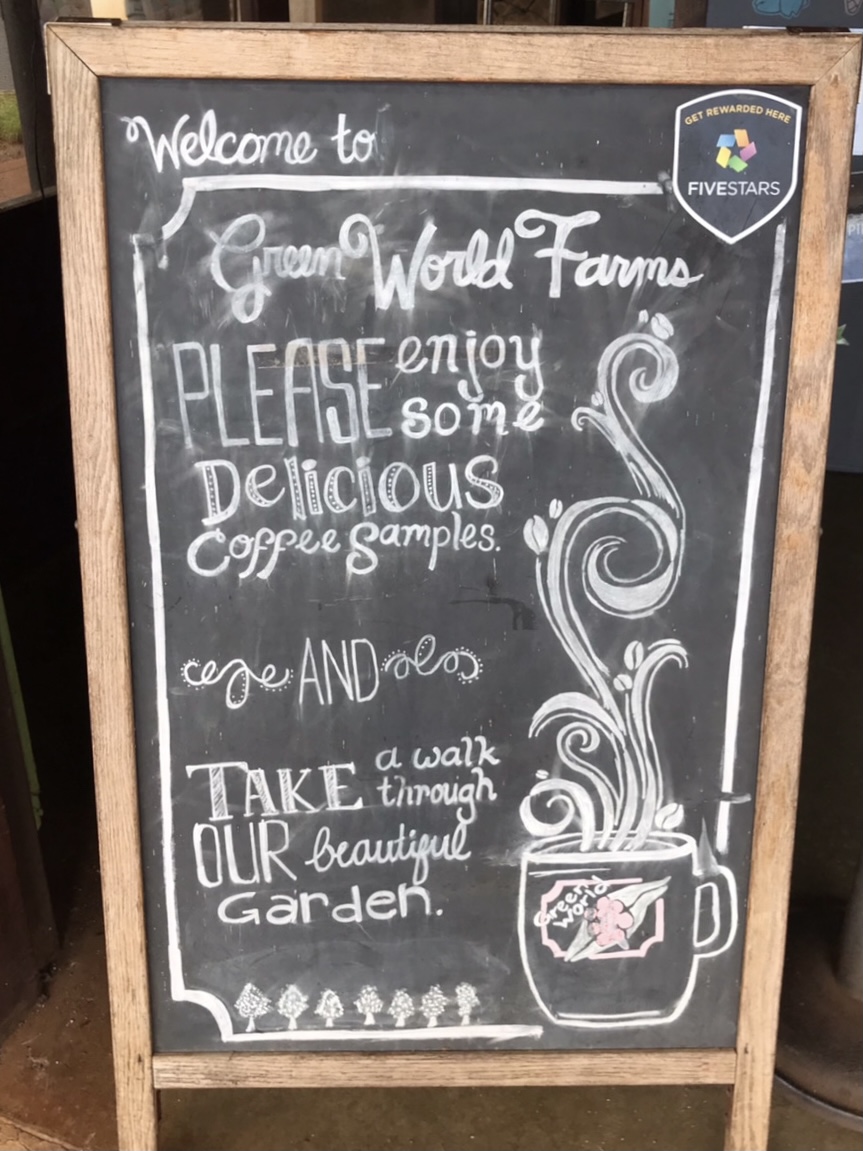 Welcome to
GET REWARDED HERE
FIVESTARS
Green World Farms
PLEASE enjoy
some
Delicious
Coffee Samples.
AND
TAKE a walk
through
OUR beautiful
Garden.
Green
World